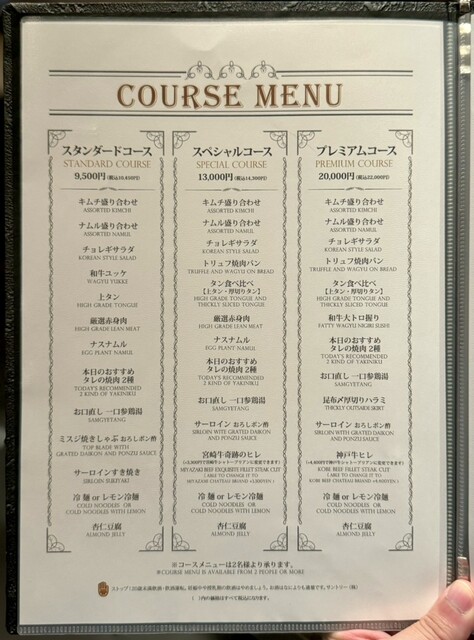 COURSE MENU
スタンダードコース
STANDARD COURSE
9,500円(税込10,450円)
キムチ盛り合わせ
ASSORTED KIMCHI
ナムル盛り合わせ
ASSORTED NAMUL
チョレギサラダ
KOREAN STYLE SALAD
和牛ユッケ
WAGYU YUKKE
上タン
HIGH GRADE TONGUE
厳選赤身肉
HIGH GRADE LEAN MEAT
ナスナムル
EGG PLANT NAMUL
本日のおすすめ
タレの焼肉 2種
TODAY'S RECOMMENDED
2 KIND OF YAKINIKU
お口直し 一口参鶏湯
SAMGYETANG
ミスジ焼きしゃぶ おろしポン酢
TOP BLADE WITH
GRATED DAIKON AND PONZU SAUCE
サーロインすき焼き
SIRLOIN SUKIYAKI
冷 麺 or レモン冷麺
COLD NOODLES OR
COLD NOODLES WITH LEMON
杏仁豆腐
ALMOND JELLY
スペシャルコース
SPECIAL COURSE
13,000円(税込14,300円)
キムチ盛り合わせ
ASSORTED KIMCHI
ナムル盛り合わせ
ASSORTED NAMUL
チョレギサラダ
KOREAN STYLE SALAD
トリュフ焼肉パン
TRUFFLE AND WAGYU ON BREAD
タン食べ比べ
【上タン・厚切りタン】
HIGH GRADE TONGUE AND
THICKLY HIGH GRADE TONGUE
厳選赤身肉
HIGH GRADE LEAN MEAT
ナスナムル
EGG PLANT NAMUL
本日のおすすめ
タレの焼肉 2種
TODAY'S RECOMMENDED
2 KIND OF YAKINIKU
お口直し 一口参鶏湯
SAMGYETANG
サーロイン おろしポン酢
SIRLOIN WITH GRATED DAIKON
AND PONZU SAUCE
宮崎牛奇跡のヒレ
MIYAZAKI BEEF EXQUISITE FILLET STEAK CUT
ABLE TO CHANGE IT TO
MIYAZAKI CHATEAU BRAND +3,300YEN
冷 麺 or レモン冷麺
COLD NOODLES OR
COLD NOODLES WITH LEMON
杏仁豆腐
ALMOND JELLY
プレミアムコース
PREMIUM COURSE
20,000円(税込22,000円)
キムチ盛り合わせ
ASSORTED KIMCHI
ナムル盛り合わせ
ASSORTED NAMUL
チョレギサラダ
KOREAN STYLE SALAD
トリュフ焼肉パン
TRUFFLE AND WAGYU ON BREAD
タン食べ比べ
【上タン・厚切りタン】
HIGH GRADE TONGUE AND
THICKLY HIGH GRADE TONGUE
和牛大トロ握り
FATTY WAGYU NIGIRI SUSHI
本日のおすすめ
タレの焼肉 2種
TODAY'S RECOMMENDED
2 KIND OF YAKINIKU
お口直し 一口参鶏湯
SAMGYETANG
昆布〆厚切りハラミ
THICKLY OUTSIDE SKIRT
サーロイン おろしポン酢
SIRLOIN WITH GRATED DAIKON
AND PONZU SAUCE
神戸牛ヒレ
KOBE BEEF FILLET STEAK CUT
ABLE TO CHANGE IT TO
KOBE BEEF CHATEAU BRAND
冷 麺 or レモン冷麺
COLD NOODLES OR
COLD NOODLES WITH LEMON
杏仁豆腐
ALMOND JELLY
※コースメニューは2名様より承ります。
※COURSE MENU IS AVAILABLE FROM 2 PEOPLE OR MORE
ストップ!20歳未満飲酒・飲酒運転。妊娠中や授乳期の飲酒はやめましょう。お酒はなによりも適量です。サントリー(株)
( )内の価格はすべて税込になります。